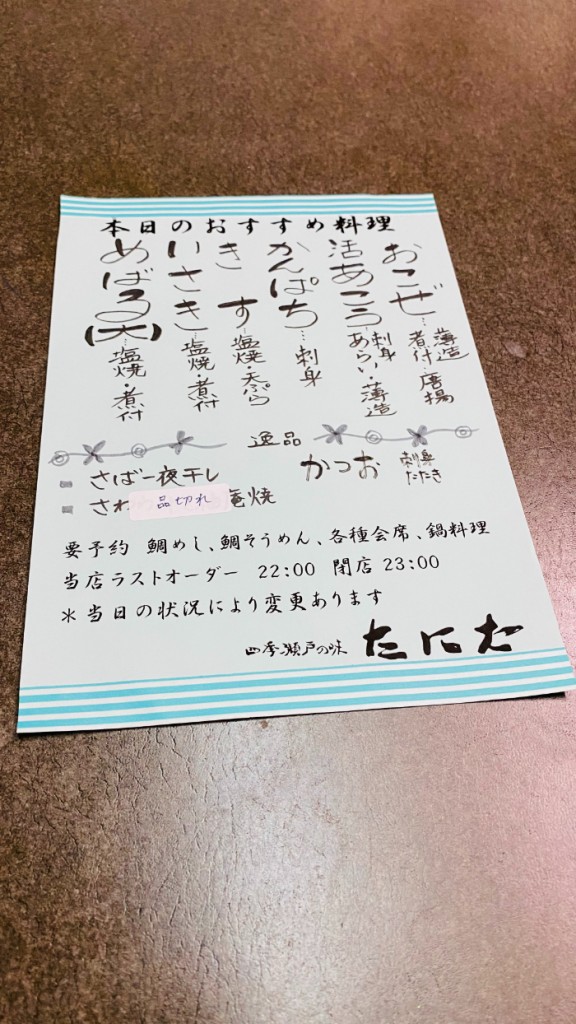 本日のおすすめ料理
おこぜ…薄造
煮付・唐揚
活あこう…刺身
あらい・薄造
かんぱち…刺身
きす…塩焼・天ぷら
いさき…塩焼・煮付
めばる(大)…塩焼・煮付
逸品
さばー夜干し
かつお 刺身
たたき
さわ 品切れ 庵焼
要予約 鯛めし、鯛そうめん、各種会席、鍋料理
当店ラストオーダー 22:00 閉店 23:00
*当日の状況により変更あります
四季瀬戸の味 たにた